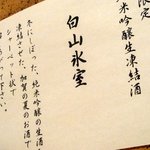 限定
純米吟醸生凍結酒
白山氷室
冬にしぼった、純米吟醸の生酒
凍結させた、加賀の夏のお酒で
シャーベット状で